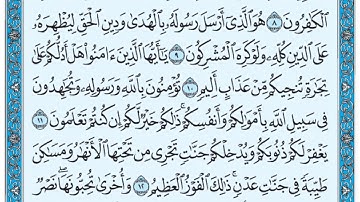 ٱلْكَٰفِرُونَ ٨ هُوَ ٱلَّذِىٓ أَرْسَلَ رَسُولَهُۥ بِٱلْهُدَىٰ وَدِينِ ٱلْحَقِّ لِيُظْهِرَهُۥ
عَلَى ٱلدِّينِ كُلِّهِۦ وَلَوْ كَرِهَ ٱلْمُشْرِكُونَ ٩ يَٰٓأَيُّهَا ٱلَّذِينَ ءَامَنُوا۟ هَلْ أَدُلُّكُمْ عَلَىٰ
تِجَٰرَةٍ تُنجِيكُم مِّنْ عَذَابٍ أَلِيمٍ ١٠ تُؤْمِنُونَ بِٱللَّهِ وَرَسُولِهِۦ وَتُجَٰهِدُونَ
فِى سَبِيلِ ٱللَّهِ بِأَمْوَٰلِكُمْ وَأَنفُسِكُمْ ۚ ذَٰلِكُمْ خَيْرٌ لَّكُمْ إِن كُنتُمْ تَعْلَمُونَ ١١
يَغْفِرْ لَكُمْ ذُنُوبَكُمْ وَيُدْخِلْكُمْ جَنَّٰتٍ تَجْرِى مِن تَحْتِهَا ٱلْأَنْهَٰرُ وَمَسَٰكِنَ
طَيِّبَةً فِى جَنَّٰتِ عَدْنٍ ۚ ذَٰلِكَ ٱلْفَوْزُ ٱلْعَظِيمُ ١٢ وَأُخْرَىٰ تُحِبُّونَهَا ۖ نَصْرٌ